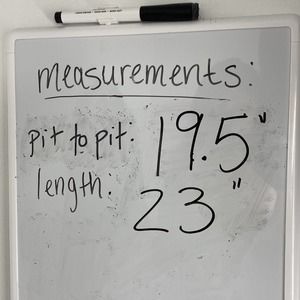 measurements:
pit to pit: 19.5"
length: 23"